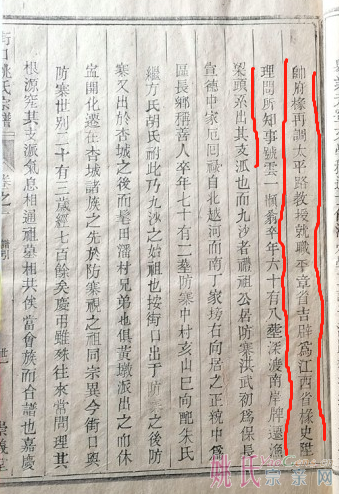 帥府椽再調太平路教授就職平章省吉辟為江西省椽史陞
理問所知事號雲一翁卒年六十有八葬深渡南岸牌邊漁
梁頭系出其支派也而九沙者禰祖公居防寨洪武初為保長
宣德中家厄回祿自北越河而南丁家塝右向居之正統中為
區長鄉稱善人卒年七十有二塟防寨中村亥山巳向配朱氏
繼方氏胡氏祔此乃九沙之始祖也按街口出于防寨之後防
寨又出於杏城之後而髦田潘村兄弟也俱黃墩派出之而休
寧開化遷在杏城諸族之先於防寨視之祖同宗異今街口與
防寨世別二十有三歲經七百餘矣慶弔雖殊往來當問理其
根源究其支派氣息相通祖墓相共俟當會族而合譜也嘉慶
街口姚氏宗譜
卷之一
姚氏宗亲网